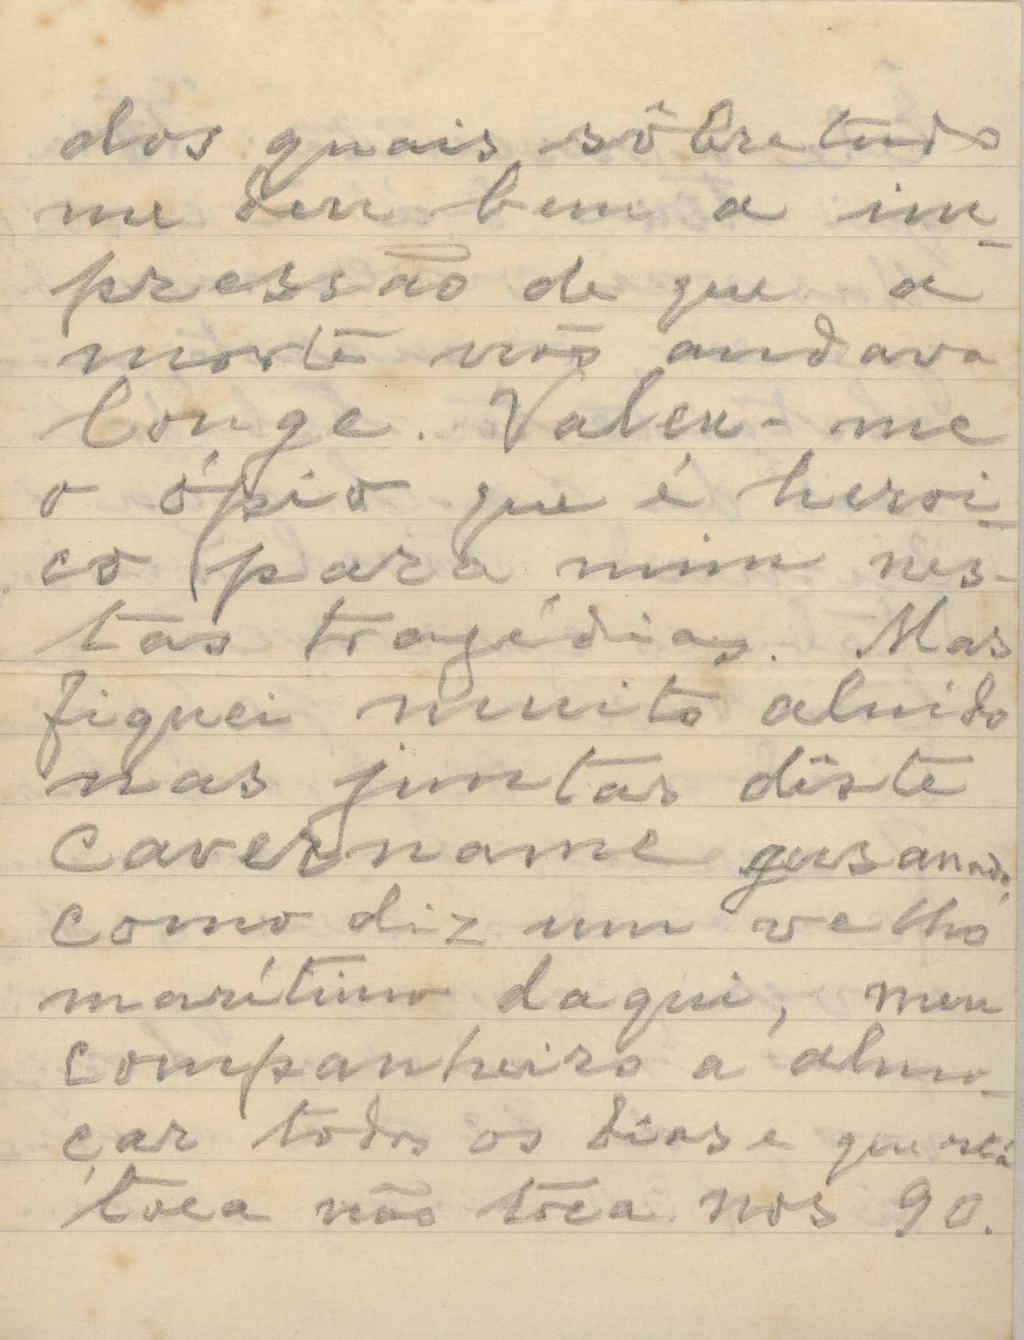 dos quais sôbretudo
me deu bem a im-
pressão de que a
morte não andava
longe. Valeu-me
o ópio que é heroi-
co para mim nes-
tas tragédias. Mas
fiquei muito aluido
nas juntas dêste
cavername gusanado,
como diz um velho
marítimo daqui, meu
companheiro a almo-
çar todos os dias e que está
toca não toca nos 90.